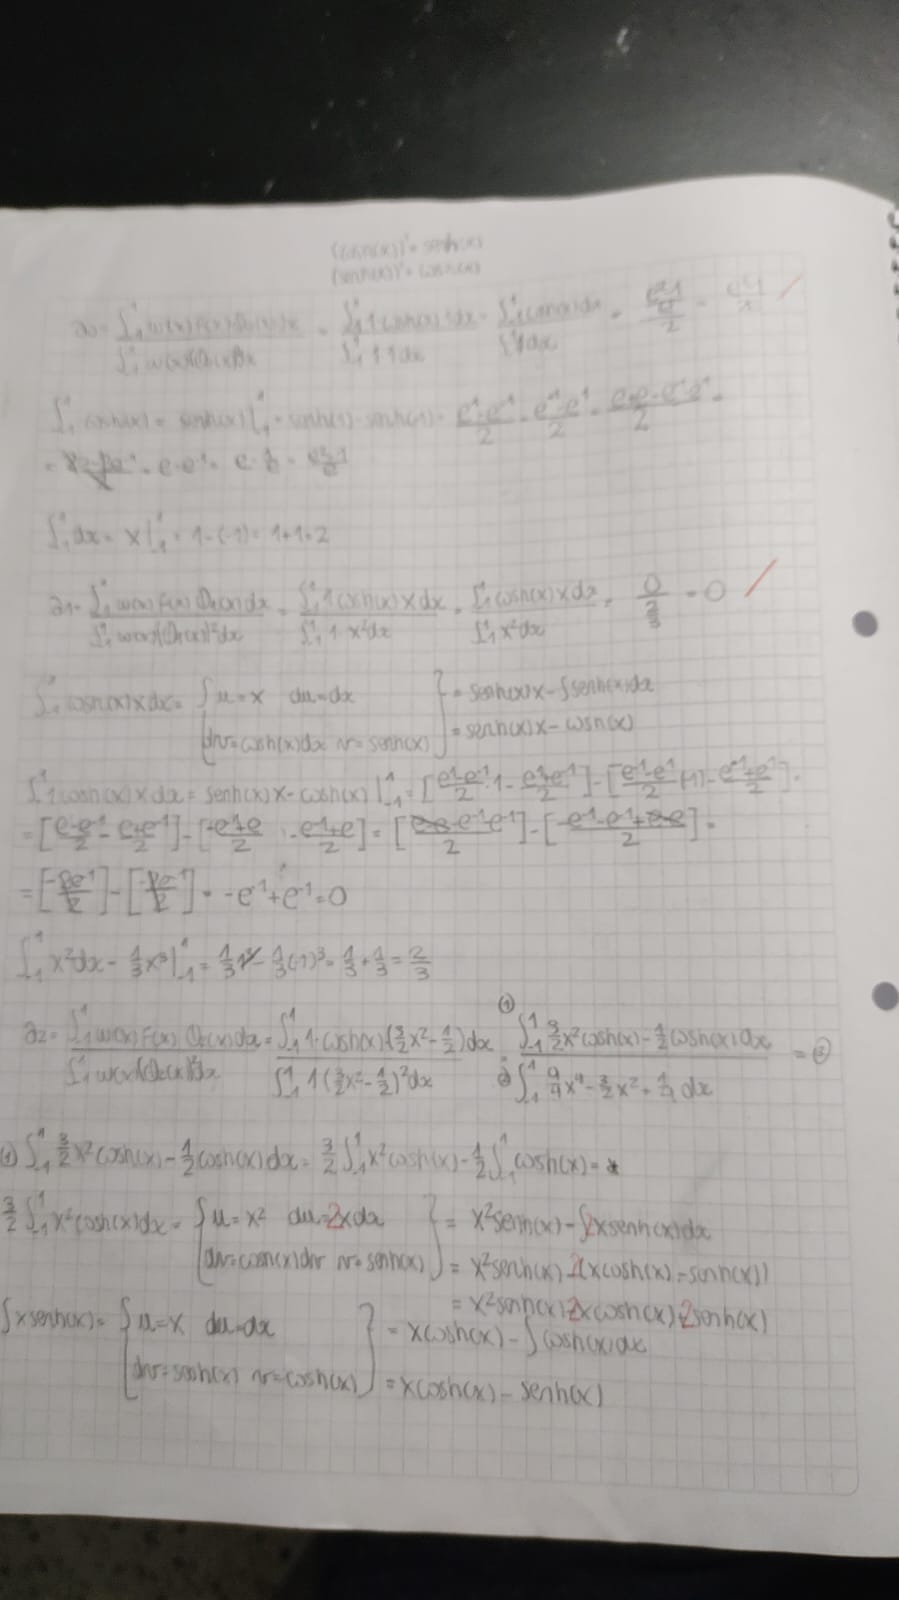 (cosh(x))' = senh(x)
(senh(x))' = cosh(x)
a0 = ∫₋₁¹ w(x) f(x) Φ0(x) dx / ∫₋₁¹ w(x) (Φ0(x))² dx = ∫₋₁¹ 1 cosh(x) 1 dx / ∫₋₁¹ 1 1 dx = ∫₋₁¹ cosh(x) dx / ∫₋₁¹ 1 dx =
∫₋₁¹ cosh(x) = senh(x) |₋₁¹ = senh(1) - senh(-1) = (e¹ - e⁻¹)/2 - (e⁻¹ - e¹)/2 =
= e - e⁻¹ =
∫₋₁¹ dx = x |₋₁¹ = 1 - (-1) = 1 + 1 = 2
a1 = ∫₋₁¹ w(x) f(x) Φ1(x) dx / ∫₋₁¹ w(x) (Φ1(x))² dx = ∫₋₁¹ 1 cosh(x) x dx / ∫₋₁¹ 1 · x² dx = ∫₋₁¹ cosh(x) x dx / ∫₋₁¹ x² dx = 0 / (2/3) = 0
∫₋₁¹ cosh(x) x dx = { u = x du = dx } = senh(x) x - ∫ senh(x) dx
{ dv = cosh(x) dx v = senh(x) } = senh(x) x - cosh(x)
∫₋₁¹ cosh(x) x dx = senh(x) x - cosh(x) |₋₁¹ = [(e¹ - e⁻¹)/2 · 1 - (e¹ + e⁻¹)/2] - [(e⁻¹ - e¹)/2 (-1) - (e⁻¹ + e¹)/2] =
= [(e - e⁻¹)/2 - (e + e⁻¹)/2] - [(-e⁻¹ + e)/2 - (e⁻¹ + e)/2] = [(e - e - e⁻¹ - e⁻¹)/2] - [(-e⁻¹ - e⁻¹ + e - e)/2] =
= [-2e⁻¹/2] - [-2e⁻¹/2] = -e⁻¹ + e⁻¹ = 0
∫₋₁¹ x² dx = 1/3 x³ |₋₁¹ = 1/3 1³ - 1/3 (-1)³ = 1/3 + 1/3 = 2/3
a2 = ∫₋₁¹ w(x) f(x) Φ2(x) dx / ∫₋₁¹ w(x) (Φ2(x))² dx = ∫₋₁¹ 1 · cosh(x) · (3/2 x² - 1/2) dx / ∫₋₁¹ 1 (3/2 x² - 1/2)² dx = ① ∫₋₁¹ 3/2 x² cosh(x) - 1/2 cosh(x) dx / ② ∫₋₁¹ 9/4 x⁴ - 3/2 x² + 1/4 dx =
① ∫₋₁¹ 3/2 x² cosh(x) - 1/2 cosh(x) dx = 3/2 ∫₋₁¹ x² cosh(x) - 1/2 ∫₋₁¹ cosh(x) = *
3/2 ∫₋₁¹ x² cosh(x) dx = { u = x² du = 2x dx } = x² senh(x) - ∫ 2x senh(x) dx
{ dv = cosh(x) dv v = senh(x) } = x² senh(x) - 2(x cosh(x) - senh(x))
= x² senh(x) - 2x cosh(x) + 2 senh(x)
∫ x senh(x) = { u = x du = dx } = x cosh(x) - ∫ cosh(x) dx
{ dv = senh(x) v = cosh(x) } = x cosh(x) - senh(x)